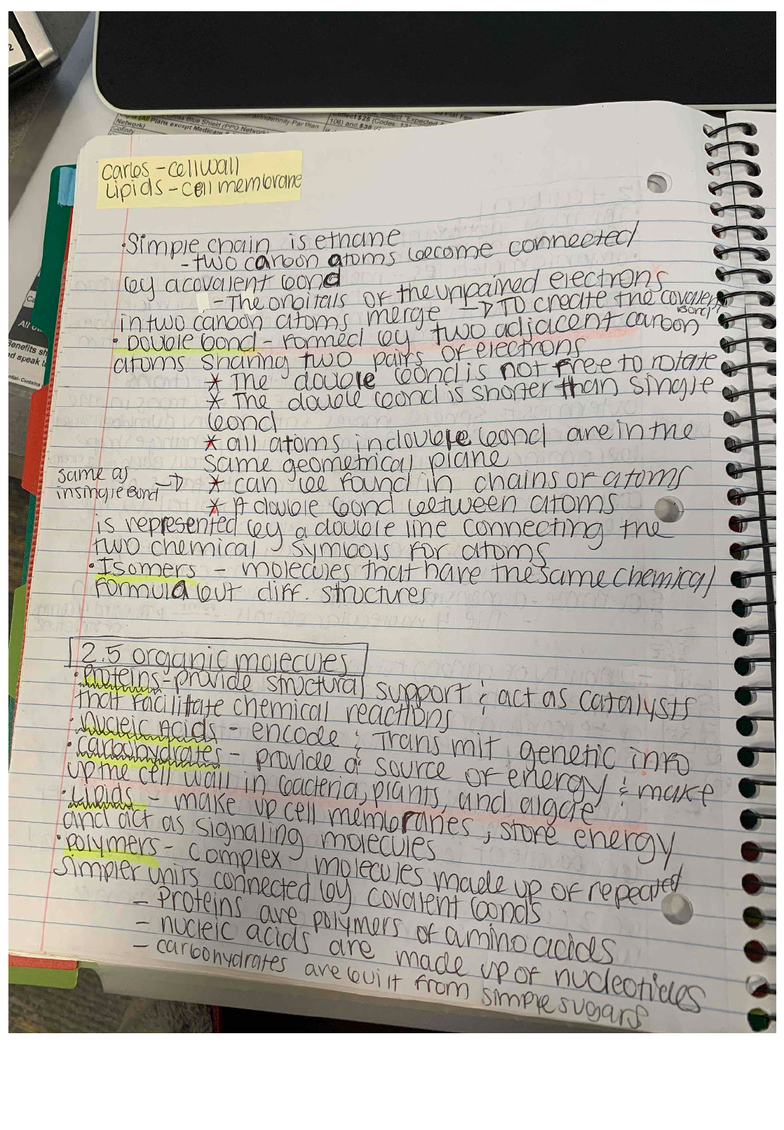 carbs - cell wall
Lipids - cell membrane
•Simple chain is ethane
- two carbon atoms become connected
by a covalent bond
- The orbitals of the unpaired electrons
in two carbon atoms merge → To create the covalent bond
• Double bond - formed by two adjacent carbon
atoms sharing two pairs of electrons
* The double bond is not free to rotate
* The double bond is shorter than single
bond
* all atoms in double bond are in the
same geometrical plane
same as
in single bond → * can be found in chains of atoms
* A double bond between atoms
is represented by a double line connecting the
two chemical symbols for atoms
• Isomers - molecules that have the same chemical
formula but diff. structures
2.5 organic molecules
• Proteins - provide structural support & act as catalysts
that facilitate chemical reactions
• nucleic Acids - encode & Transmit genetic info
• carbohydrates - provide a source of energy & make
up the cell wall in bacteria, plants, and algae
• Lipids - make up cell membranes, store energy
and act as signaling molecules
• polymers - complex molecules made up of repeated
simpler units connected by covalent bonds
- Proteins are polymers of amino acids
- nucleic acids are made up of nucleotides
- carbohydrates are built from simple sugars